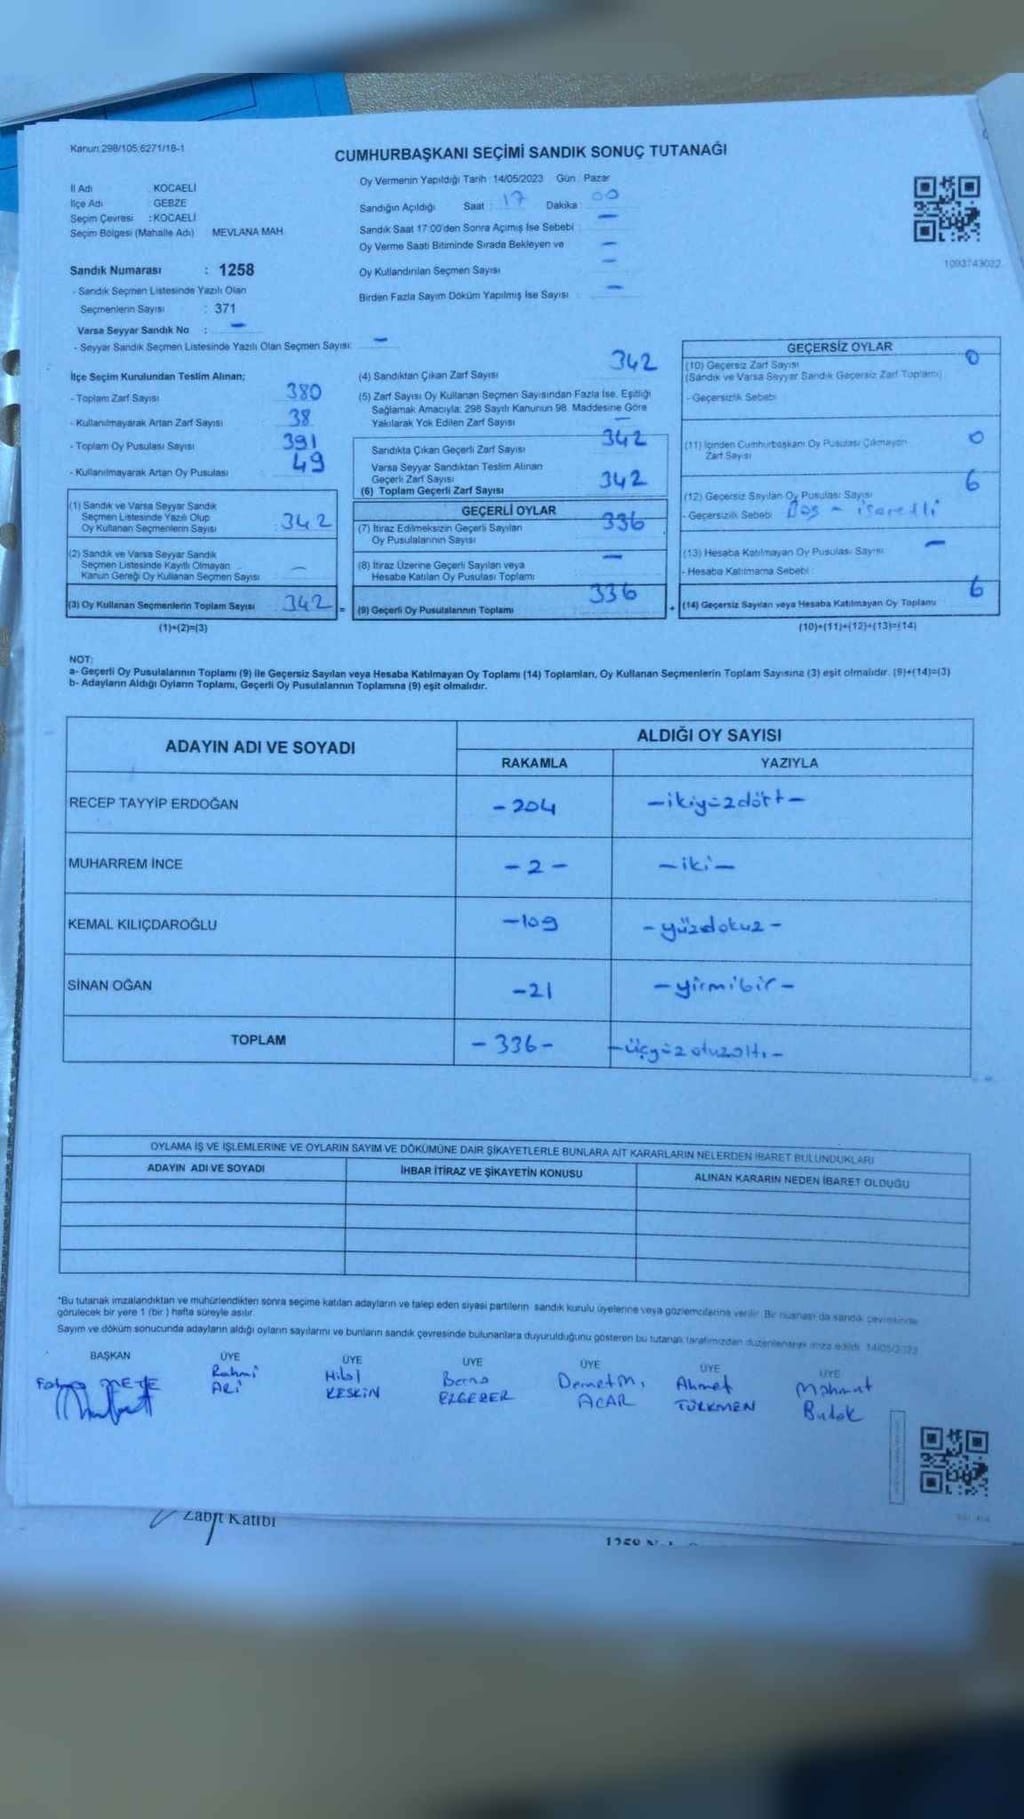 Kanun:298/105,6271/18-1
CUMHURBAŞKANI SEÇİMİ SANDIK SONUÇ TUTANAĞI
İl Adı : KOCAELİ
İlçe Adı : GEBZE
Seçim Çevresi : KOCAELİ
Seçim Bölgesi (Mahalle Adı) MEVLANA MAH.
Sandık Numarası : 1258
- Sandık Seçmen Listesinde Yazılı Olan
Seçmenlerin Sayısı : 371
Varsa Seyyar Sandık No : -
- Seyyar Sandık Seçmen Listesinde Yazılı Olan Seçmen Sayısı: -
Oy Vermenin Yapıldığı Tarih :14/05/2023 Gün : Pazar
Sandığın Açıldığı Saat : 17 Dakika : 00
Sandık Saat 17:00'den Sonra Açımış İse Sebebi : -
Oy Verme Saati Bitiminde Sırada Bekleyen ve -
Oy Kullandırılan Seçmen Sayısı -
Birden Fazla Sayım Döküm Yapılmış İse Sayısı : -
1093743022
İlçe Seçim Kurulundan Teslim Alınan;
- Toplam Zarf Sayısı 380
- Kullanılmayarak Artan Zarf Sayısı 38
- Toplam Oy Pusulası Sayısı 391
- Kullanılmayarak Artan Oy Pusulası 49
(1) Sandık ve Varsa Seyyar Sandık
Seçmen Listesinde Yazılı Olup
Oy Kullanan Seçmenlerin Sayısı : 342
(2) Sandık ve Varsa Seyyar Sandık
Seçmen Listesinde Kayıtlı Olmayan
Kanun Gereği Oy Kullanan Seçmen Sayısı -
(3) Oy Kullanan Seçmenlerin Toplam Sayısı 342 =
(1)+(2)=(3)
(4) Sandıktan Çıkan Zarf Sayısı 342
(5) Zarf Sayısı Oy Kullanan Seçmen Sayısından Fazla İse, Eşitliği
Sağlamak Amacıyla: 298 Sayılı Kanunun 98. Maddesine Göre
Yakılarak Yok Edilen Zarf Sayısı -
Sandıkta Çıkan Geçerli Zarf Sayısı 342
Varsa Seyyar Sandıktan Teslim Alınan
Geçerli Zarf Sayısı
(6) Toplam Geçerli Zarf Sayısı 342
GEÇERLİ OYLAR
(7) İtiraz Edilmeksizin Geçerli Sayılan
Oy Pusulalarının Sayısı 336
(8) İtiraz Üzerine Geçerli Sayılan veya
Hesaba Katılan Oy Pusulası Toplamı -
(9) Geçerli Oy Pusulalarının Toplamı 336 +
GEÇERSİZ OYLAR
(10) Geçersiz Zarf Sayısı 0
(Sandık ve Varsa Seyyar Sandık Geçersiz Zarf Toplamı)
- Geçersizlik Sebebi
(11) İçinden Cumhurbaşkanı Oy Pusulası Çıkmayan
Zarf Sayısı 0
(12) Geçersiz Sayılan Oy Pusulası Sayısı 6
- Geçersizlik Sebebi Boş - işaretli
(13) Hesaba Katılmayan Oy Pusulası Sayısı -
- Hesaba Katılmama Sebebi
(14) Geçersiz Sayılan veya Hesaba Katılmayan Oy Toplamı 6
(10)+(11)+(12)+(13)=(14)
NOT:
a- Geçerli Oy Pusulalarının Toplamı (9) ile Geçersiz Sayılan veya Hesaba Katılmayan Oy Toplamı (14) Toplamları, Oy Kullanan Seçmenlerin Toplam Sayısına (3) eşit olmalıdır. (9)+(14)=(3)
b- Adayların Aldığı Oyların Toplamı, Geçerli Oy Pusulalarının Toplamına (9) eşit olmalıdır.
ADAYIN ADI VE SOYADI
ALDIĞI OY SAYISI
RAKAMLA YAZIYLA
RECEP TAYYİP ERDOĞAN -204 -ikiyüzdört-
MUHARREM İNCE -2- -iki-
KEMAL KILIÇDAROĞLU -109 -yüzdokuz-
SİNAN OĞAN -21 -yirmibir-
TOPLAM -336- -üçyüzotuzaltı-
OYLAMA İŞ VE İŞLEMLERİNE VE OYLARIN SAYIM VE DÖKÜMÜNE DAİR ŞİKAYETLERLE BUNLARA AİT KARARLARIN NELERDEN İBARET BULUNDUKLARI
ADAYIN ADI VE SOYADI İHBAR İTİRAZ VE ŞİKAYETİN KONUSU ALINAN KARARIN NEDEN İBARET OLDUĞU
*Bu tutanak imzalandıktan ve mühürlendikten sonra seçime katılan adayların ve talep eden siyasi partilerin sandık kurulu üyelerine veya gözlemcilerine verilir. Bir nüshası da sandık çevresinde
görülecek bir yere 1 (bir ) hafta süreyle asılır.
Sayım ve döküm sonucunda adayların aldığı oyların sayılarını ve bunların sandık çevresinde bulunanlara duyurulduğunu gösteren bu tutanak tarafımızdan düzenlenerek imza edildi.
BAŞKAN ÜYE ÜYE ÜYE ÜYE ÜYE ÜYE
METE Rahmi Hilal Berna Demet M. Ahmet Mahmut
ARİ KESKİN EZGEBER ACAR TÜRKMEN Budak
Zabıt Katibi